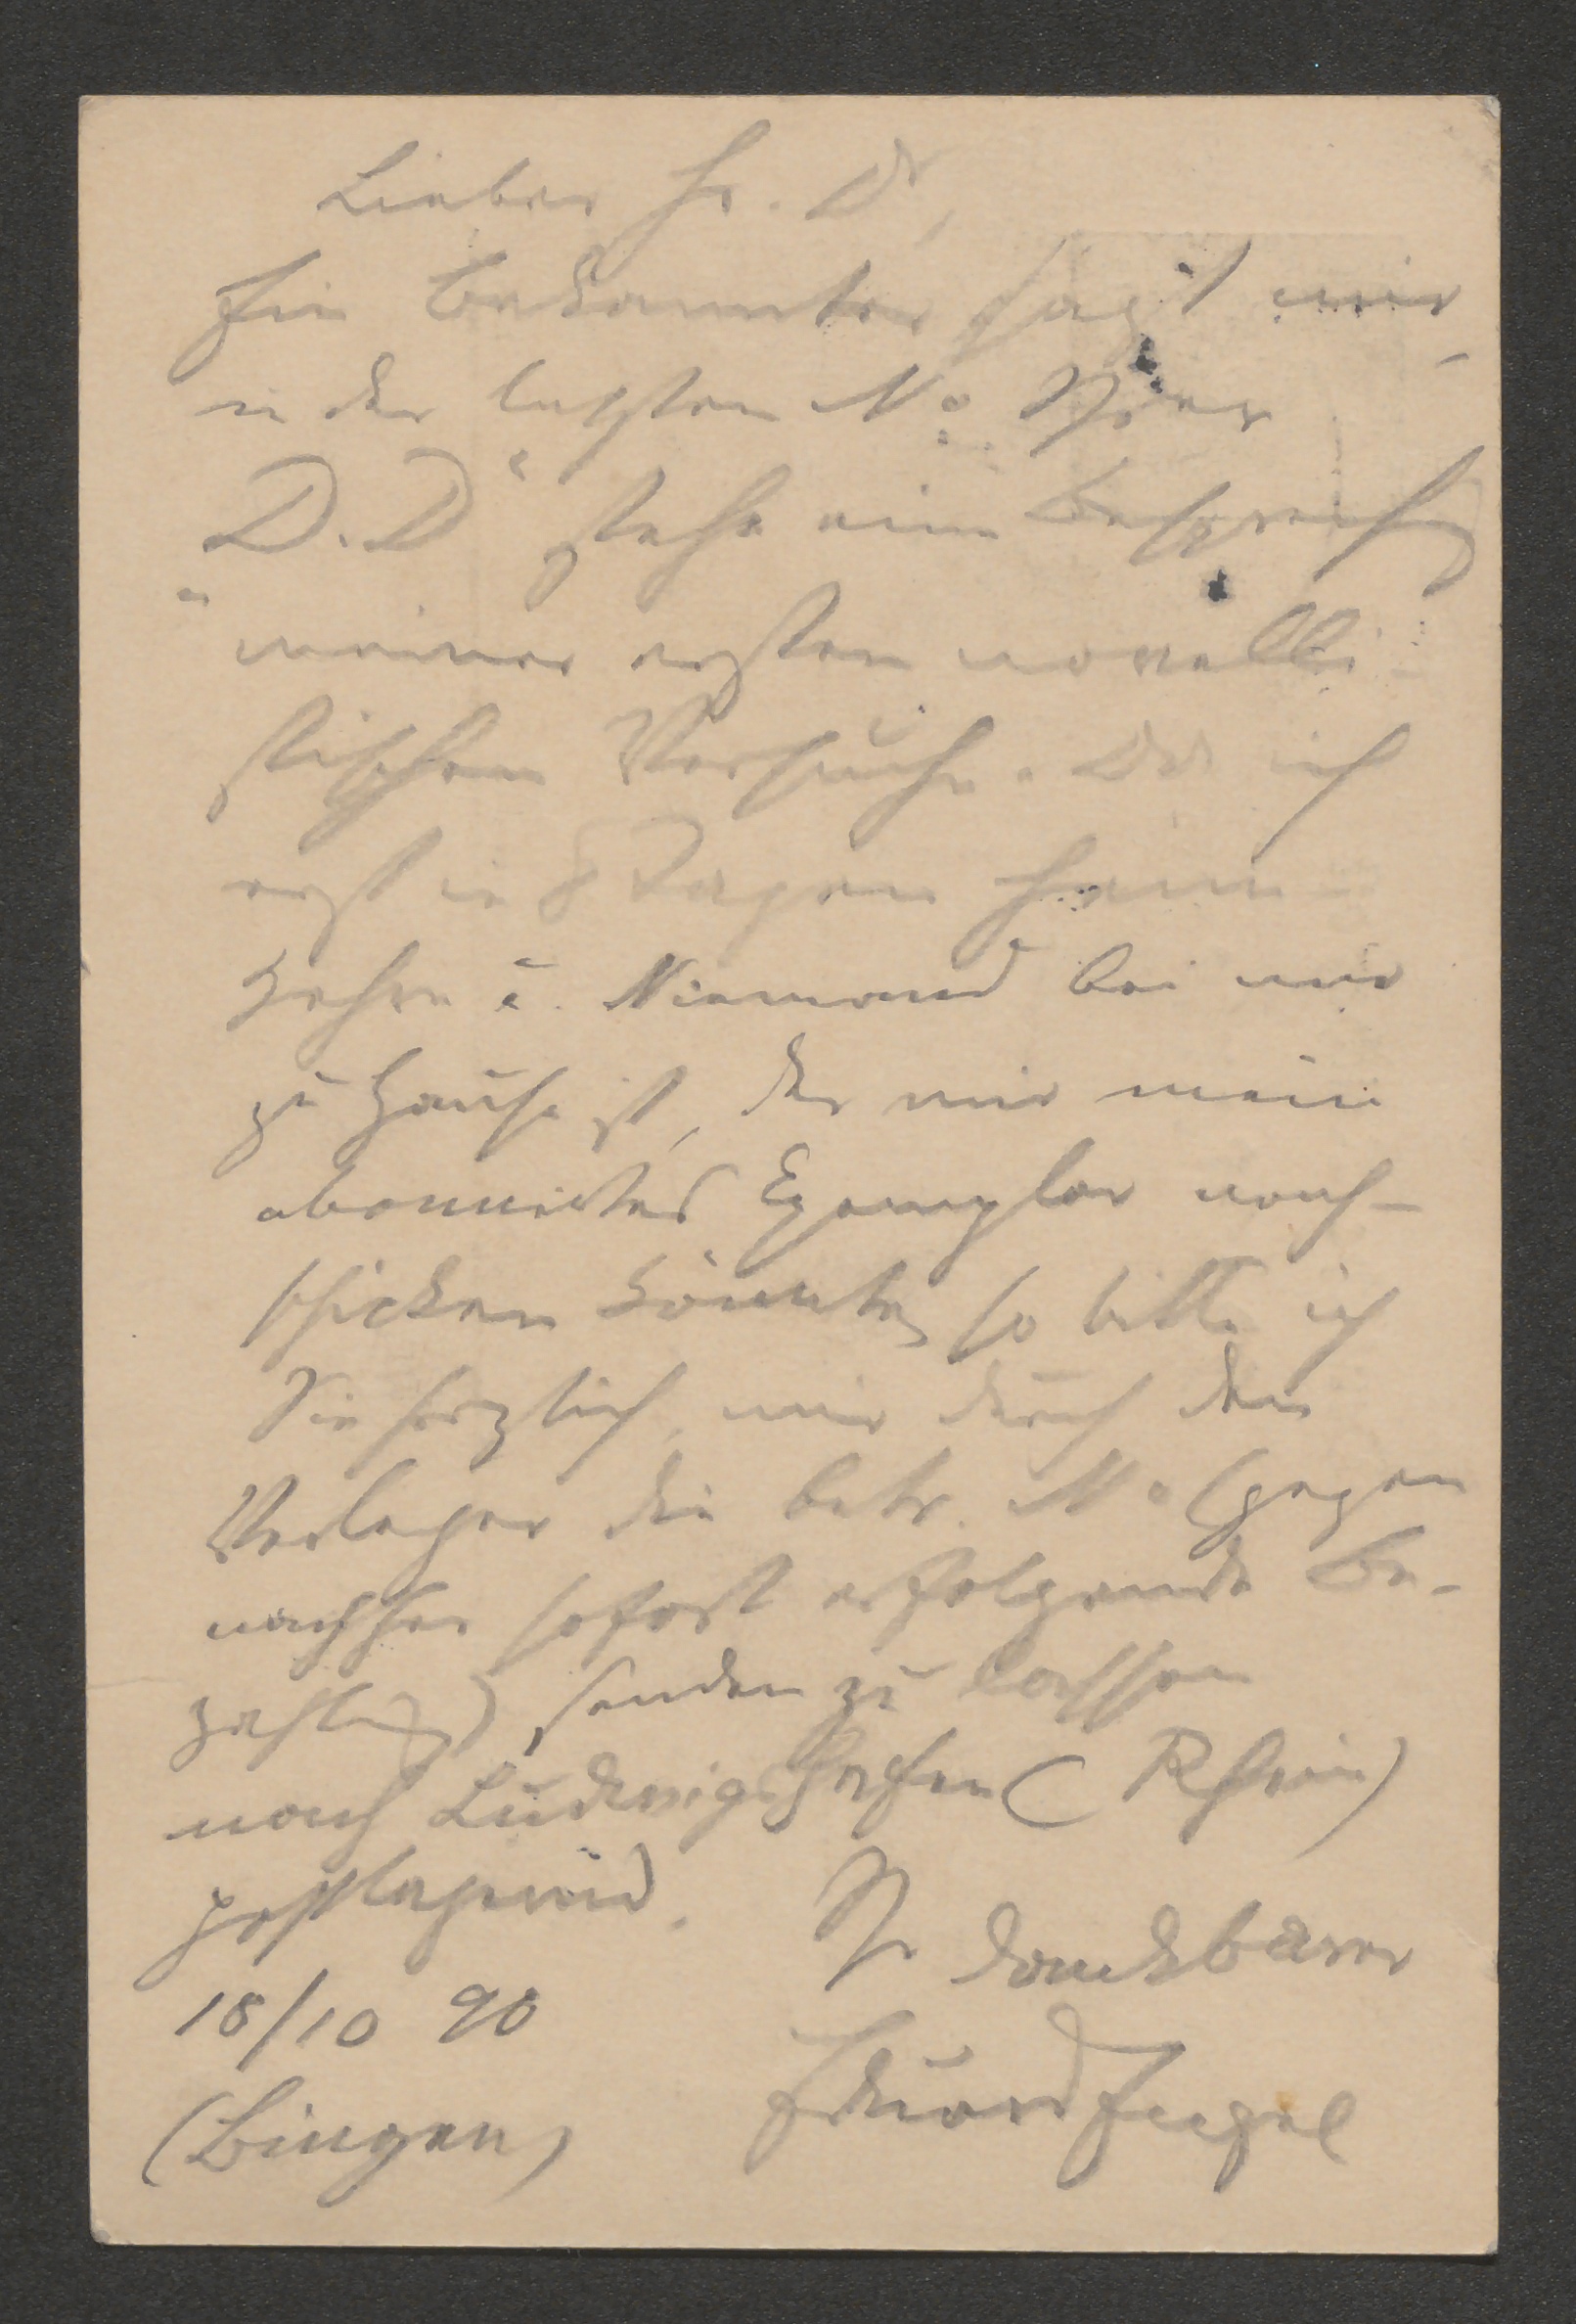 Lieber Hr. Dr,
Ein Bekannter sagt mir,
in der letzten No Ihrer
„D. D“ stehe eine Besprechg
meiner ersten novelli-
stischen Versuche. Da ich
erst in 8 Tagen heim-
kehre u. Niemand bei mir
zu Hause ist, der mir mein
abonnirtes Exemplar nach-
schicken könnte, so bitte ich
Sie herzlich, mir durch den
Verleger die betr. No (gegen
nachher sofort erfolgende Be-
zahlung) senden zu lassen
nach Ludwigshafen (Rhein)
postlagernd. Ihr dankbarer
18/10 90 Eduard Engel
(Bingen)